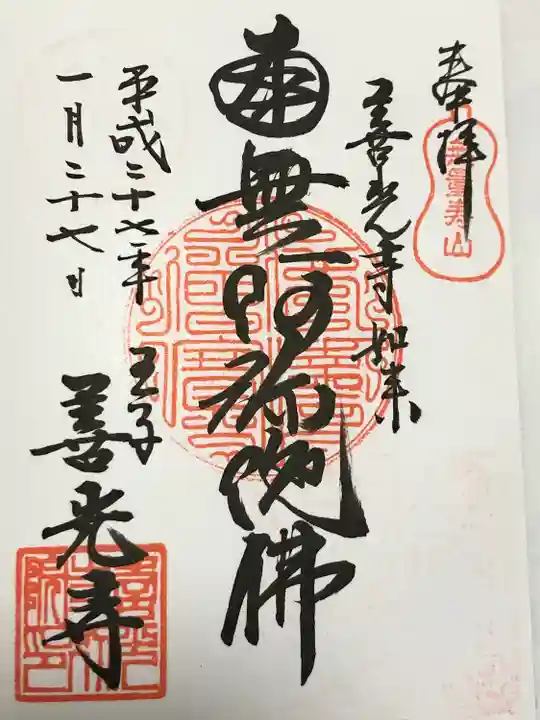 奉拝
無量寿山
善光寺如来
南無阿弥陀佛
平成二十七年
一月二十七日
王子
善光寺